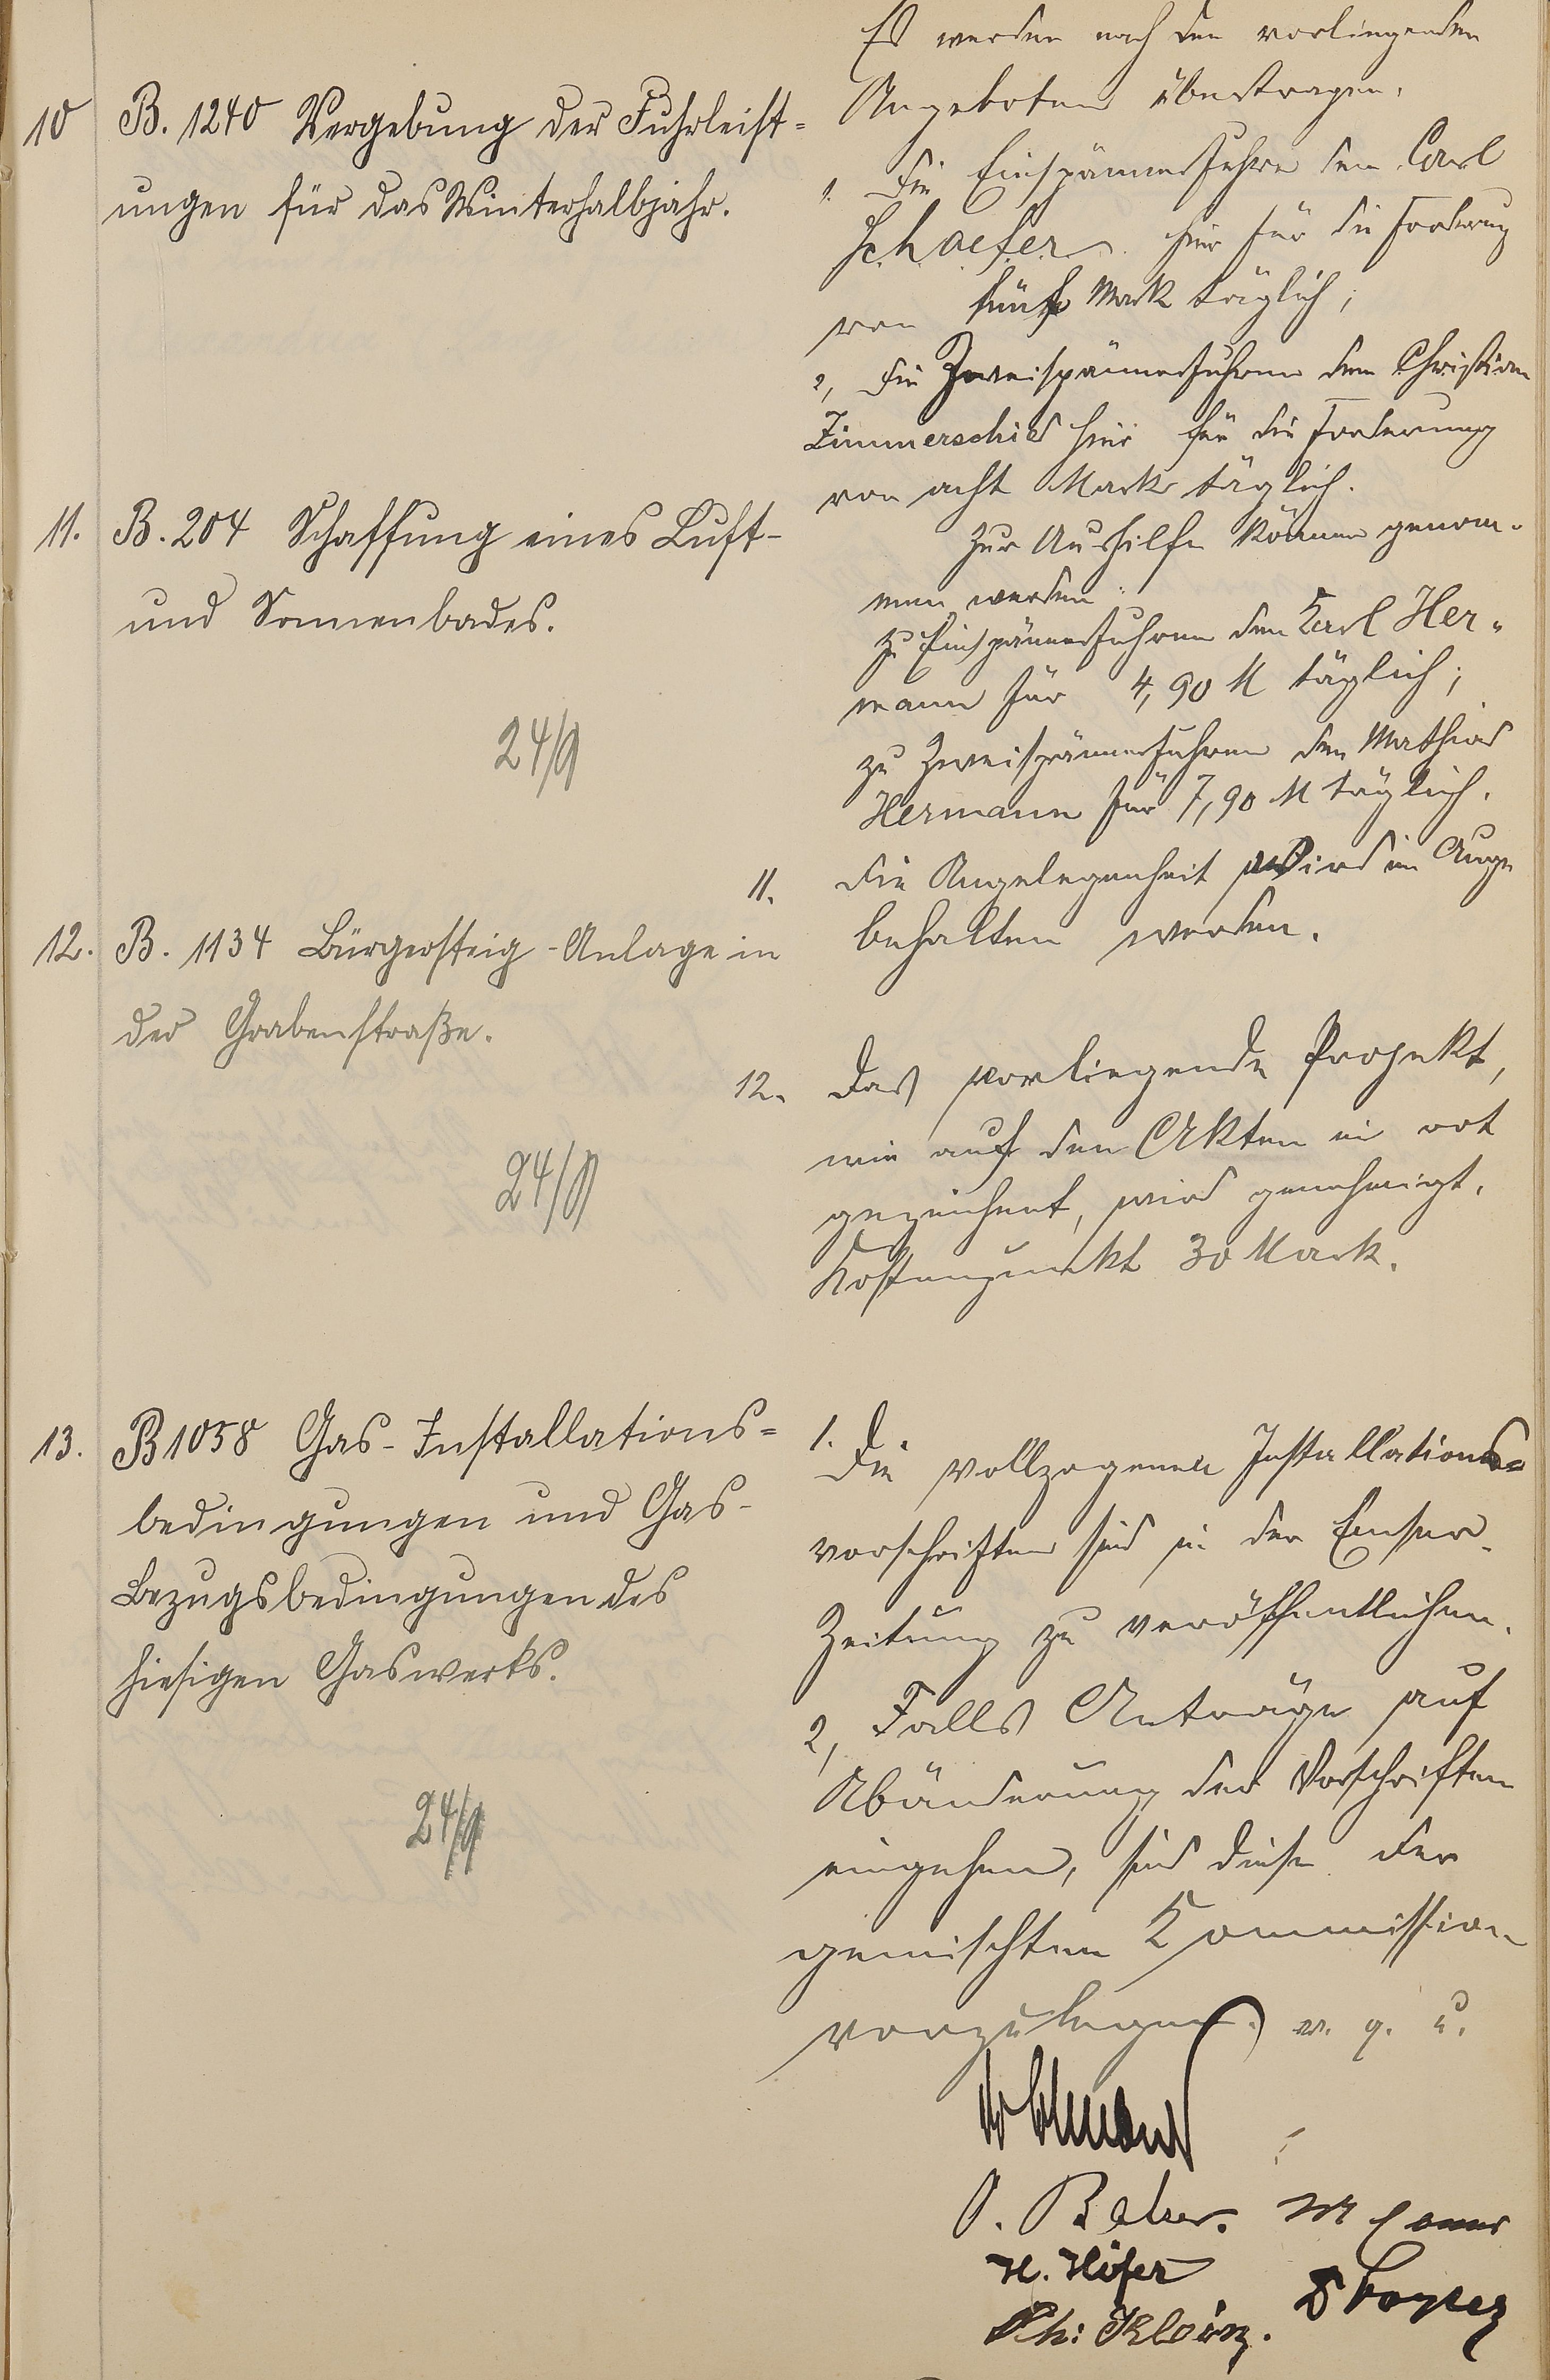 10 B. 1240 Vergebung der Fuhrleist=
ungen für das Winterhalbjahr.
Es werden nach den vorliegenden
Angeboten übertragen:
1. Die Einspännerfuhren dem Carl
Schaefer hier für die Forderung
von fünf Mark täglich;
2, die Zweispännerfuhren dem Christian
Zimmerschied hier für die Forderung
von acht Mark täglich.
Zur Aushilfe können genom-
men werden:
zu Einspännerfuhren den Karl Her-
mann für 4,90 M täglich;
zu Zweispännerfuhren den Mathias
Hermann für 7,90 M täglich.
11. B. 204 Schaffung eines Luft-
und Sonnenbades.
24/9
11. Die Angelegenheit wird im Auge
behalten werden.
12. B. 1134 Bürgersteig-Anlage in
der Grabenstraße.
24/9
12. Das vorliegende Projekt,
wie auf den Akten in rot
gezeichnet, wird genehmigt.
Kostenpunkt 30 Mark.
13. B 1058 Gas-Installations=
bedingungen und Gas-
Bezugsbedingungen des
hiesigen Gaswerks.
24/9
1. Die vollzogenen Installations=
vorschriften sind in der Emser-
Zeitung zu veröffentlichen.
2, Falls Anträge auf
Abänderung der Vorschriften
eingehen, sind diese der
gemischten Kommission
vorzulegen. v. g. u.
O. Balzer.
H. Höfer
Ph: Kloinz.